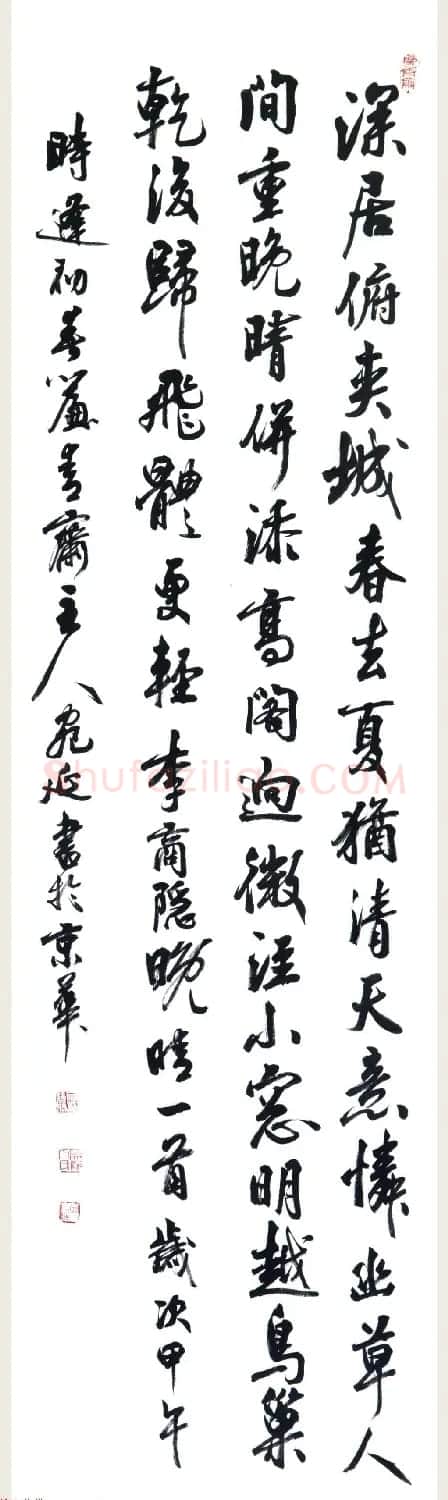 深居俯夾城春去夏猶清天意憐幽草人
間重晚晴併添高閣迥微注小窓明越鳥巢
乾後歸飛體更輕李商隱晚晴一首歲次甲午
時逢初春簾青齋主人 延書於京華
Shufaziliao.COM